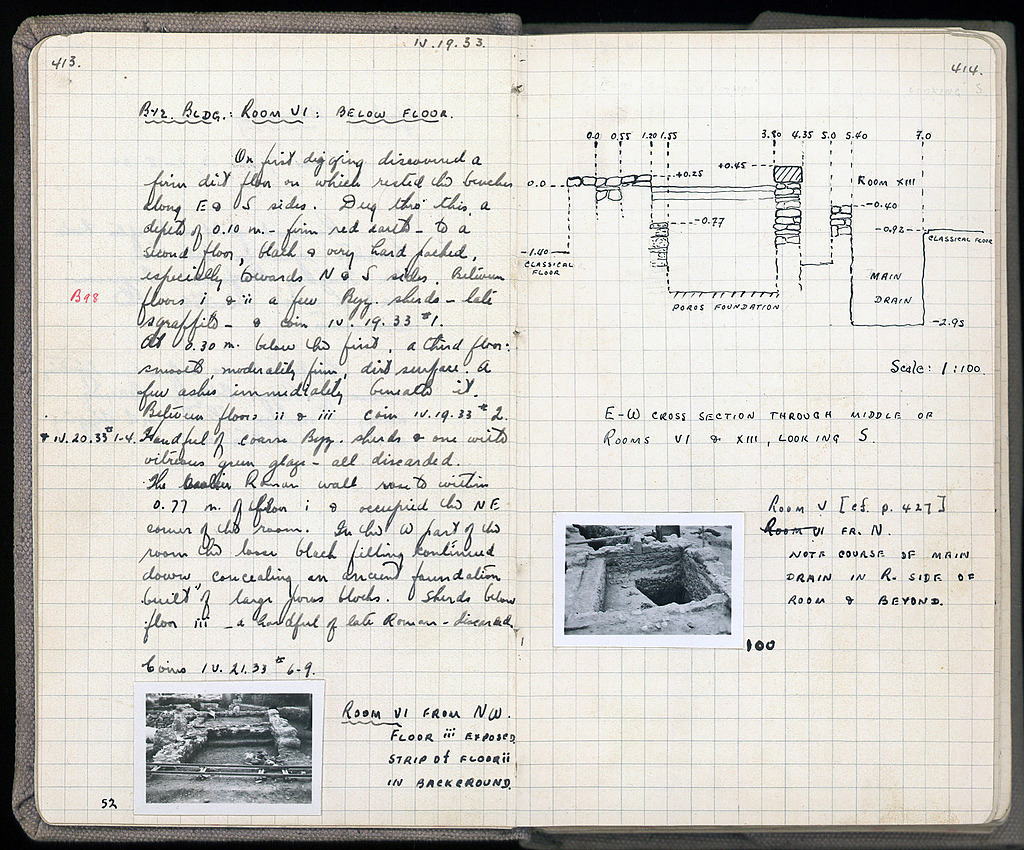 413.
IV.19.33.
Byz. Bldg.: Room VI: Below Floor.
On first digging discovered a
firm dirt floor on which rested the benches
along E & S sides. Dug thro' this, a
depth of 0.10 m. - firm red earth - to a
second floor, black & very hard packed,
especially towards N & S sides. Between
B98
floors i & ii a few Byz. sherds - late
sgraffito - & coin IV.19.33 #1.
At 0.30 m. below the first, a third floor:
smooth, moderately firm, dirt surface. A
few ashes immediately beneath it.
Between floors ii & iii coin IV.19.33 #2.
& IV.20.33 #1-4. Handful of coarse Byz. sherds & one with
vitreous green glaze - all discarded.
The Roman wall rose to within
0.77 m. of floor i & occupied the NE
corner of the room. In the W part of the
room the loose black filling continued
down, concealing an ancient foundation
built of large poros blocks. Sherds below
floor iii - a handful of late Roman - discarded
Coins IV.21.33 #6-9.
Room VI from NW.
Floor iii exposed,
strip of floor ii
in background.
52
414.
0.0 0.55 1.20 1.55 3.80 4.35 5.0 5.40 7.0
+0.45
+0.25
0.0
Room XIII
-0.40
-0.77
-0.92
Classical Floor
-1.40
Classical
Floor
Main
Drain
Poros Foundation
-2.95
Scale: 1:100.
E-W cross section through middle of
Rooms VI & XIII, looking S.
Room V [cf. p. 427]
Room VI fr. N.
Note course of main
drain in R. side of
room & beyond.
100